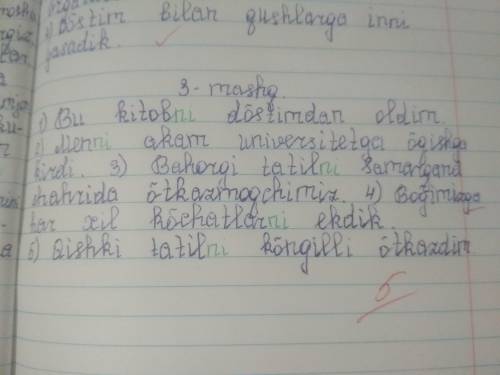 2) Döstim bilan qushlarga inni
yasadik.
3-mashq.
1) Bu kitobni döstimdan oldim.
2) Menni akam universitetga öqishga
kirdi. 3) Bahorgi tatilni Samarqand
shahrida ötkazmoqchimiz. 4) Boğimizga
har xil köchatlarni ekdik.
5) Qishki tatilni köngilli ötkazdim
5